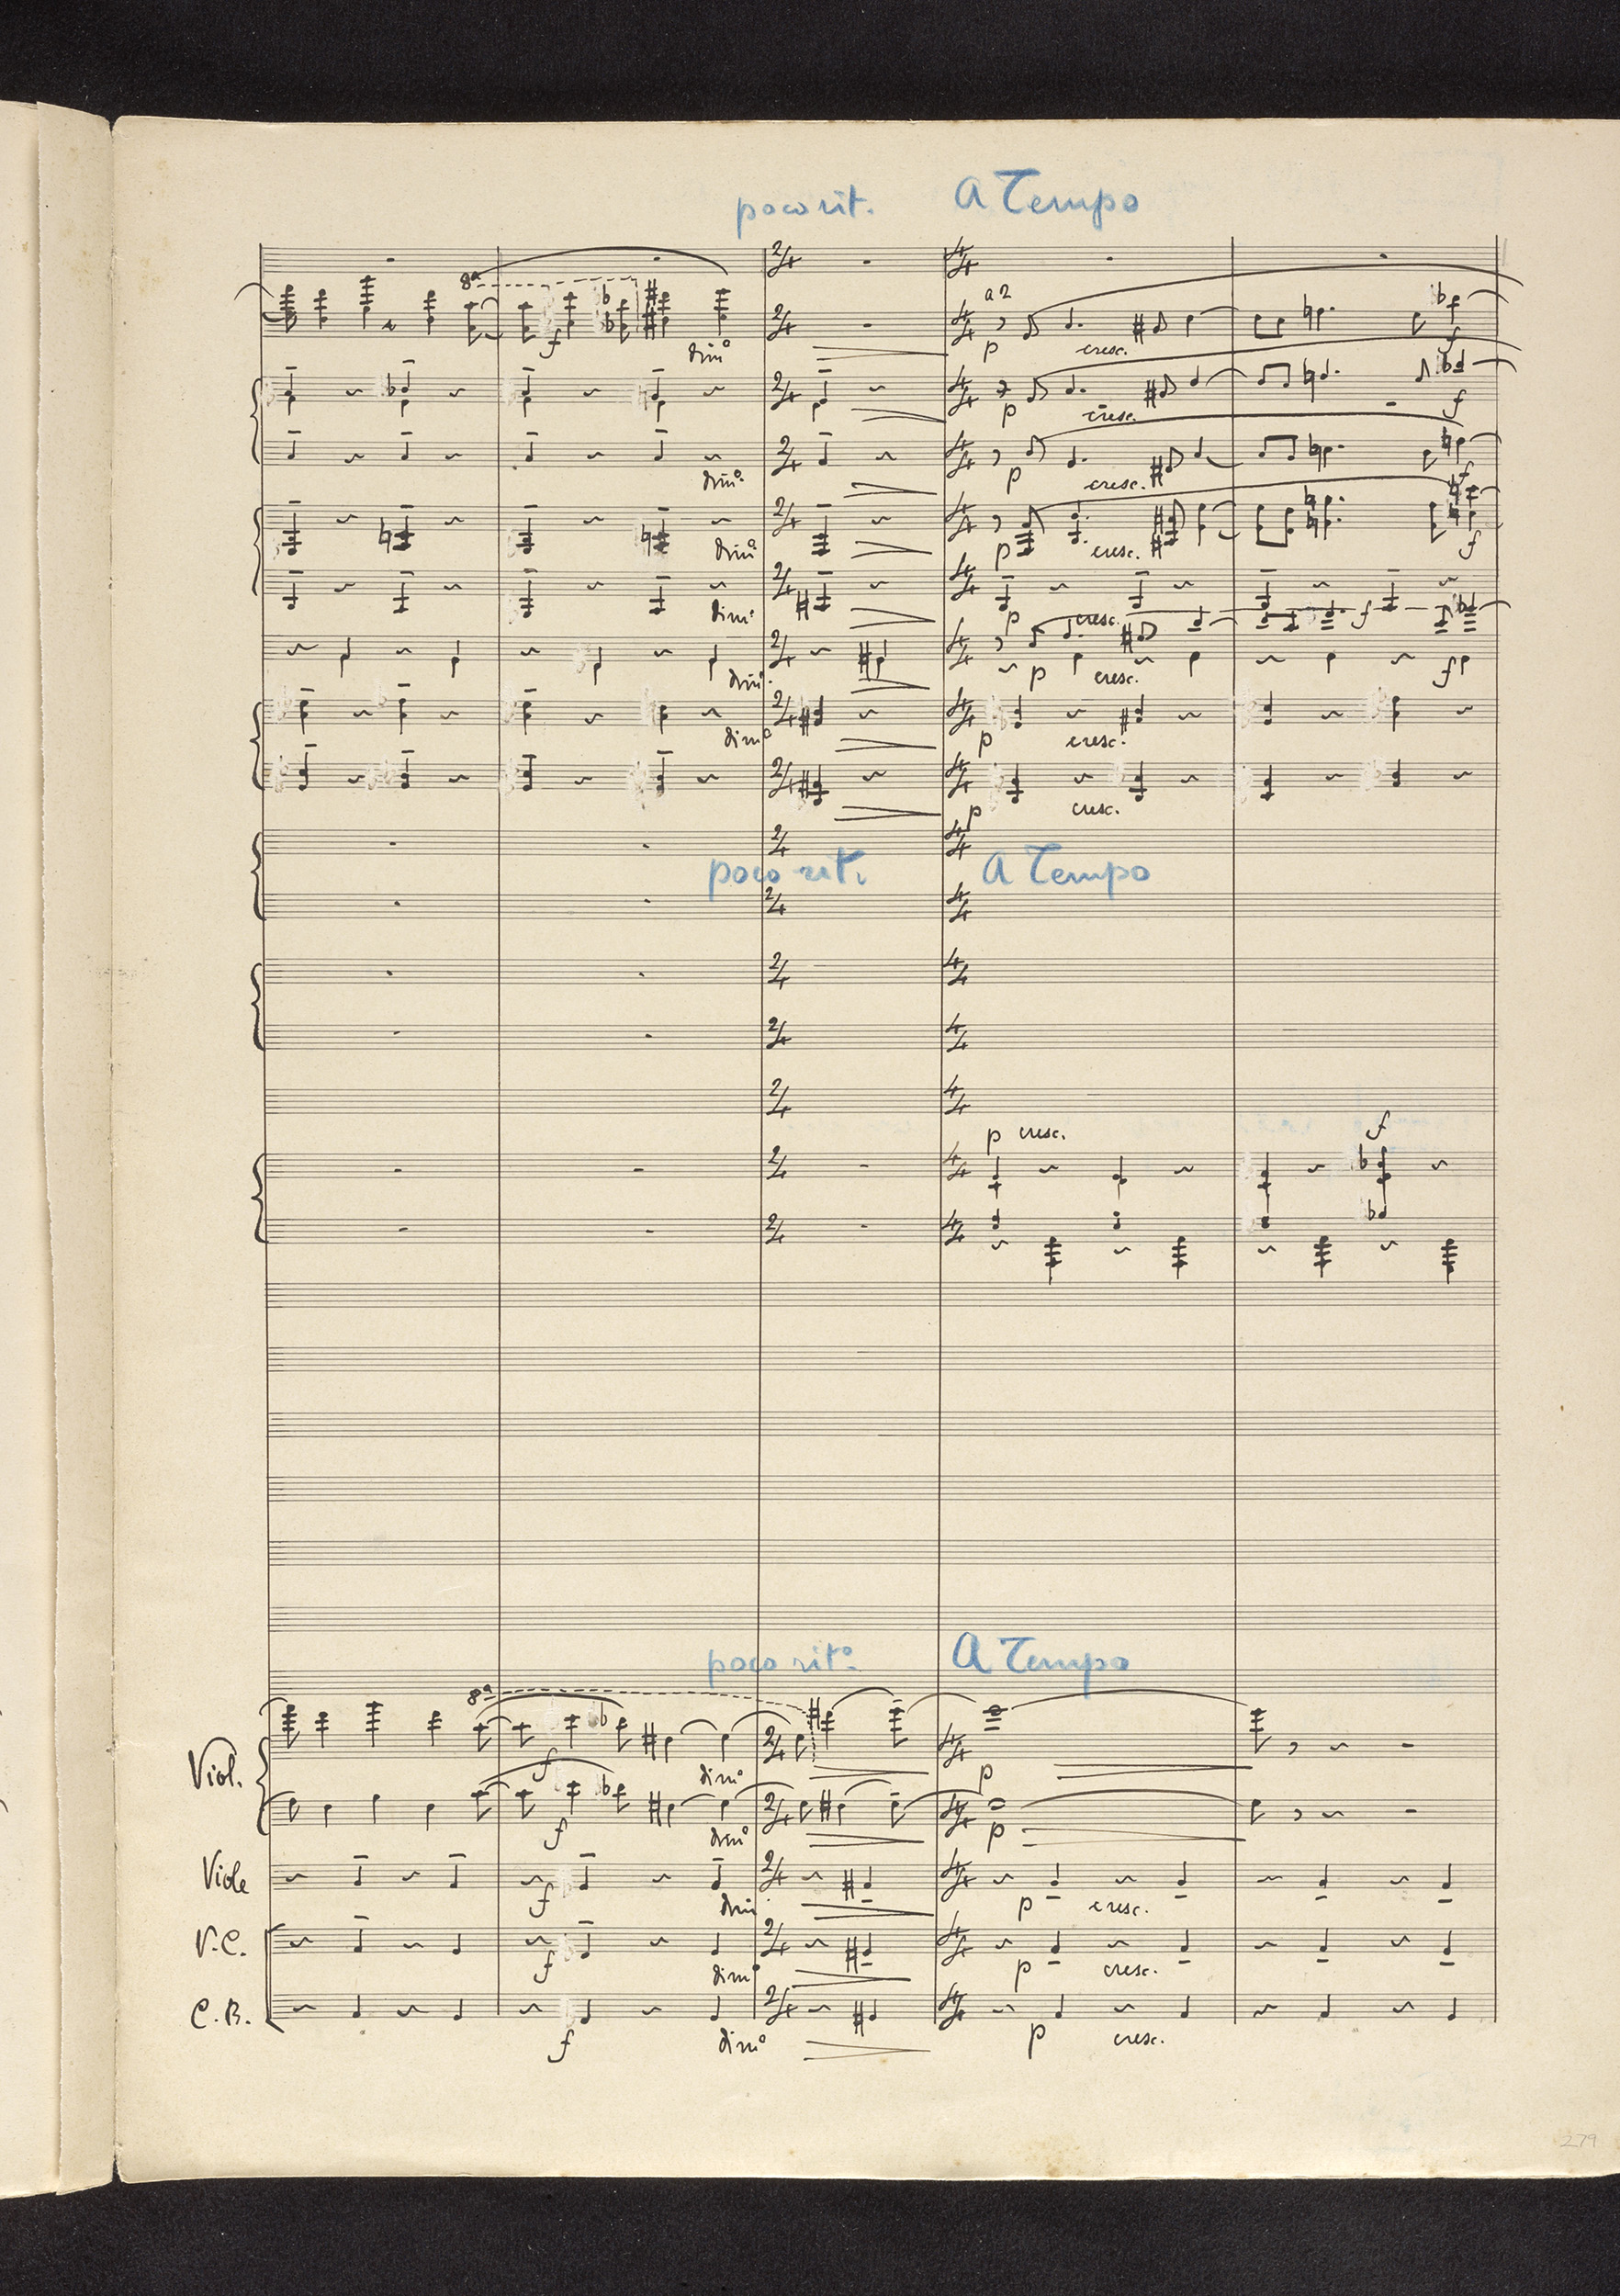 poco rit. A Tempo
2/4 4/4
8ª
a 2
f dimº p cresc. f
p cresc. f
dimº p cresc. f
dimº p cresc. f
dimº p cresc. f
dimº p cresc. f
dimº p cresc.
p cresc.
poco rit. A Tempo
p cresc. f
poco ritº A Tempo
8ª
Viol. f dimº p
f dimº p
Viole f dim p cresc.
V.C. f dimº p cresc.
C.B. f dimº p cresc.
279